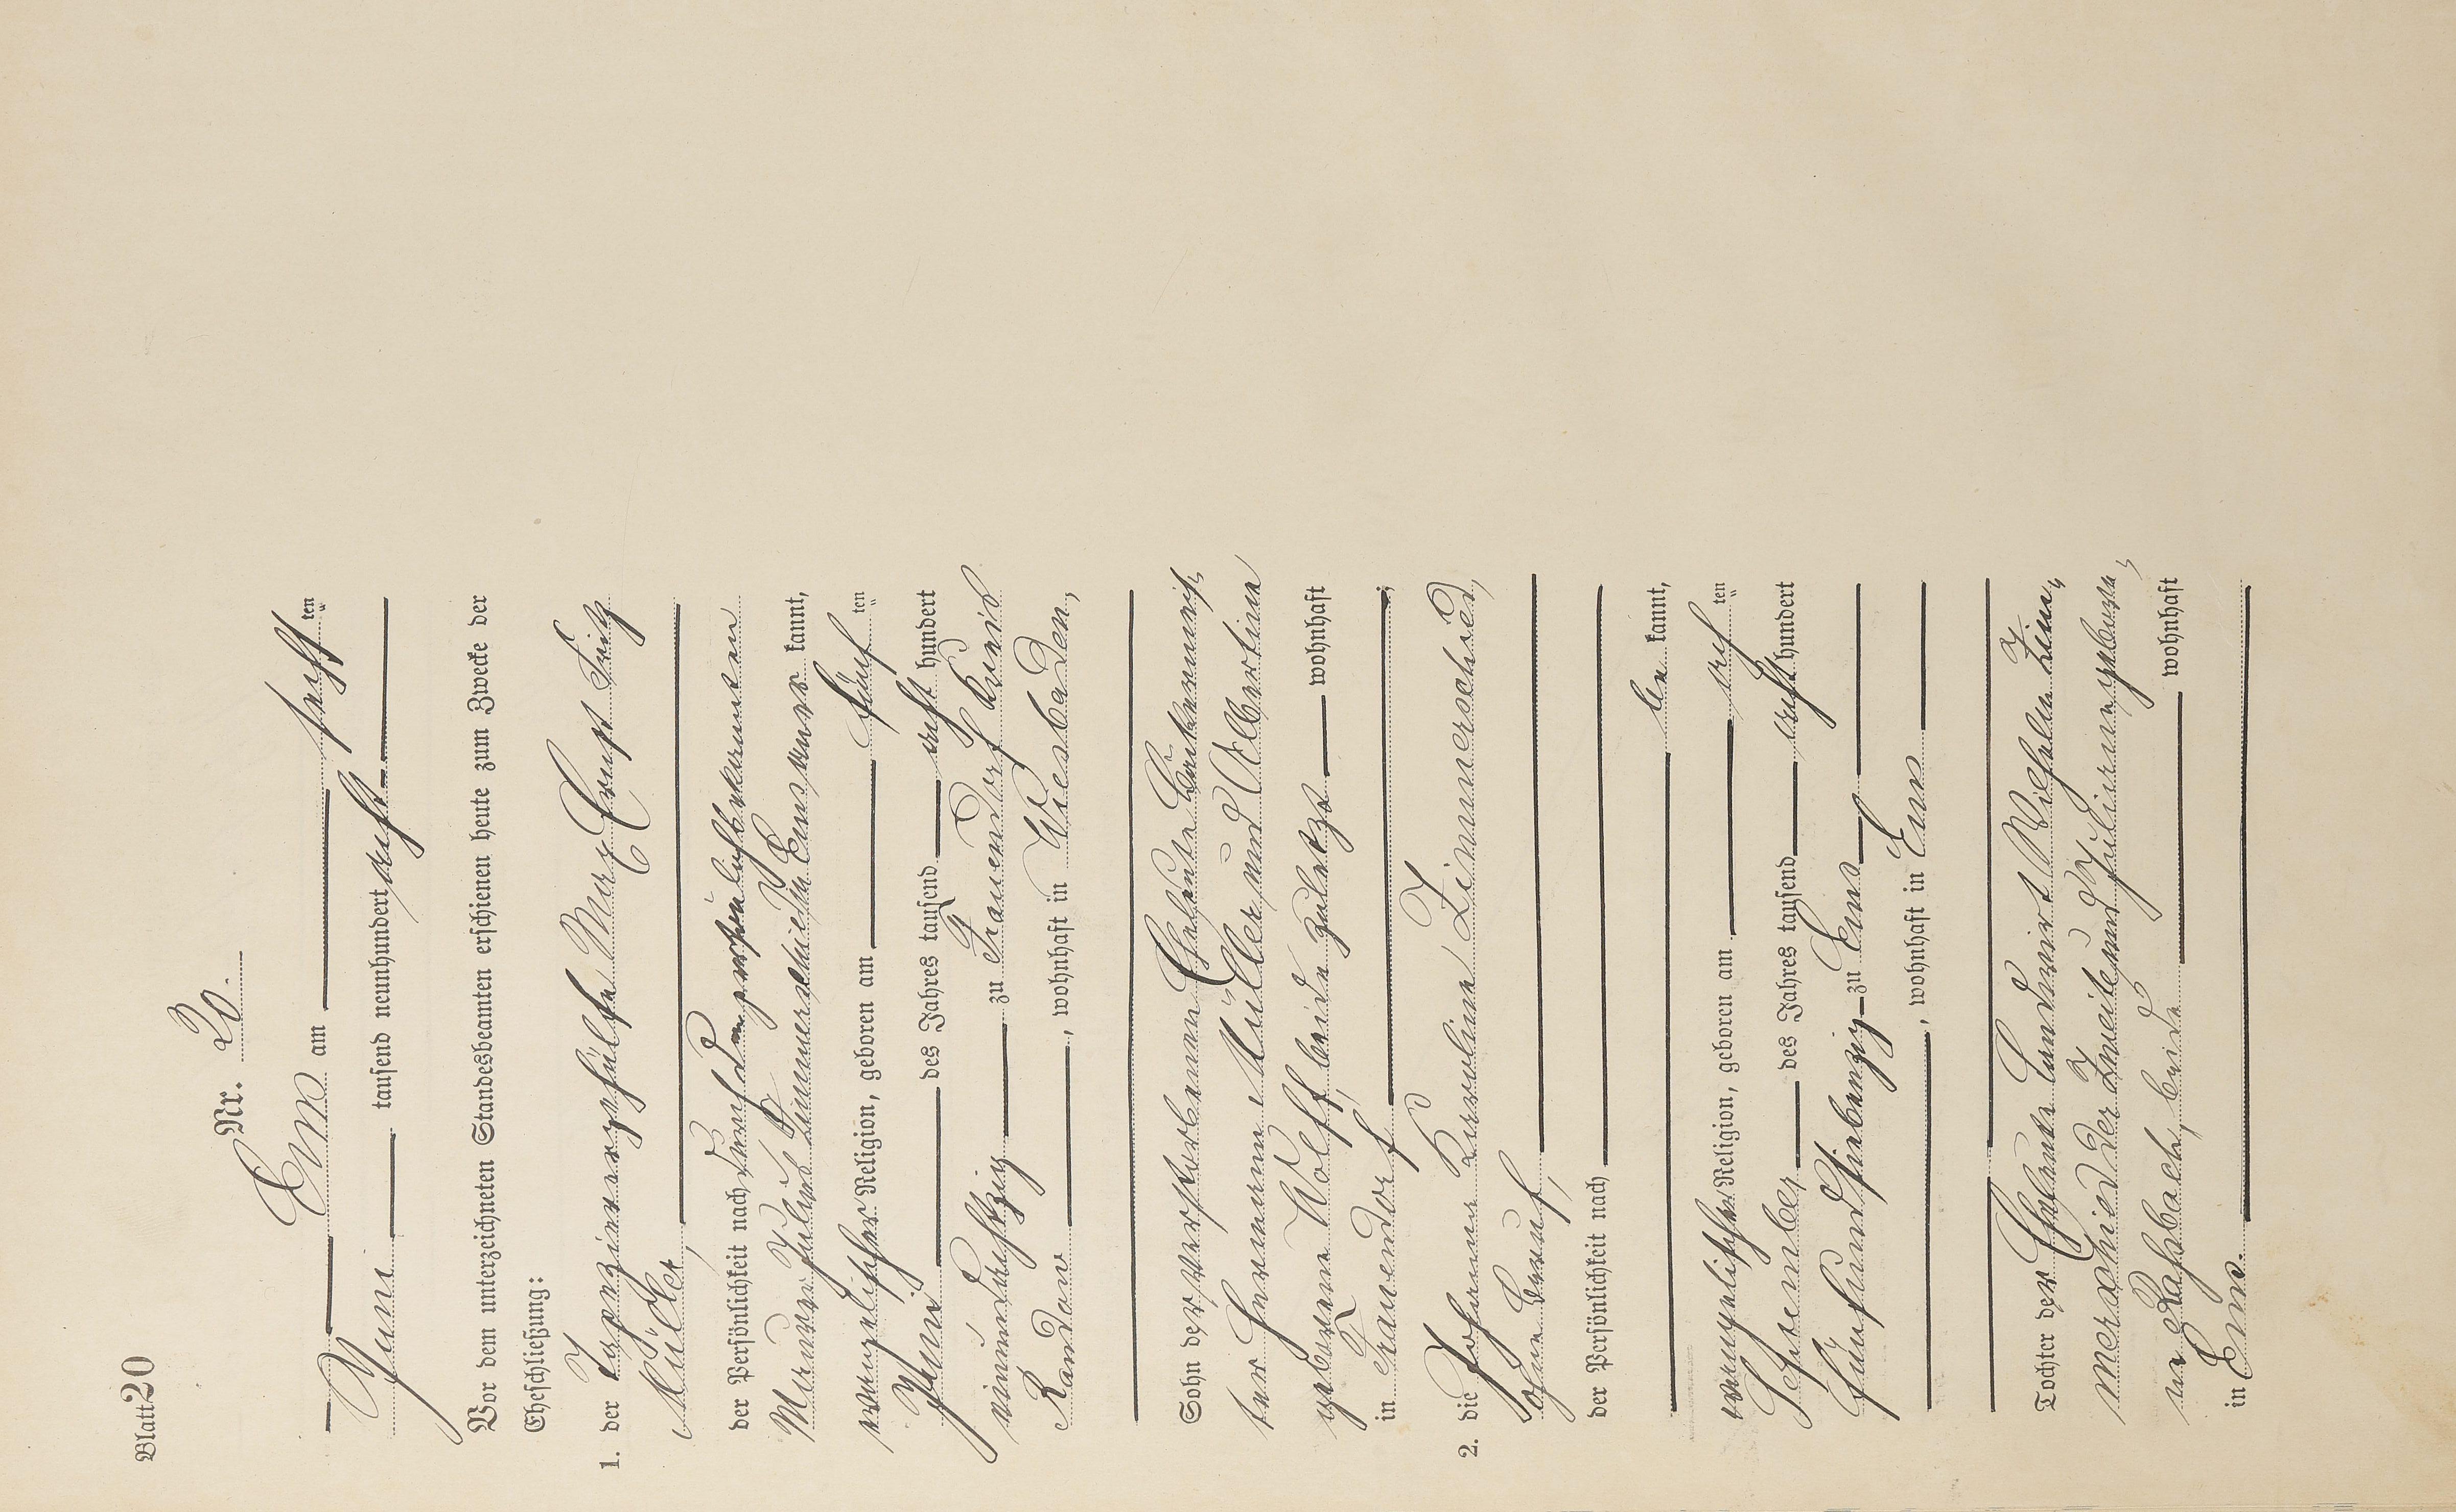 Blatt 20
Nr. 20.
Ems am sechsten
Juni tausend neunhundert acht
Vor dem unterzeichneten Standesbeamten erschienen heute zum Zwecke der
Eheschließung:
1. der Tapezierergehülfe Max Ernst Fritz
Müller,
der Persönlichkeit nach durch den persönlich bekannten
Maurer Julius Zimmerschied aus Ems aner kannt,
evangelischer Religion, geboren am fünften
Juni des Jahres tausend acht hundert
neunundachtzig zu Frauendorf Kreis
Randow, wohnhaft in Wiesbaden,
Sohn der verstorbenen Eheleute
ter Hermann Müller und Albertine
geborene Wolff, beide zuletzt wohnhaft
in Frauendorf;
2. die Johanna Karoline Zimmerschied,
ohne Beruf,
der Persönlichkeit nach
be kannt,
evangelischer Religion, geboren am achten
September des Jahres tausend acht hundert
fünfundsiebenzig zu Ems
, wohnhaft in Ems
Tochter der Eheleute Landwirt Wilhelm Zim-
merschied der Zweite und geborene
Kaszbach, beide wohnhaft
in Ems.